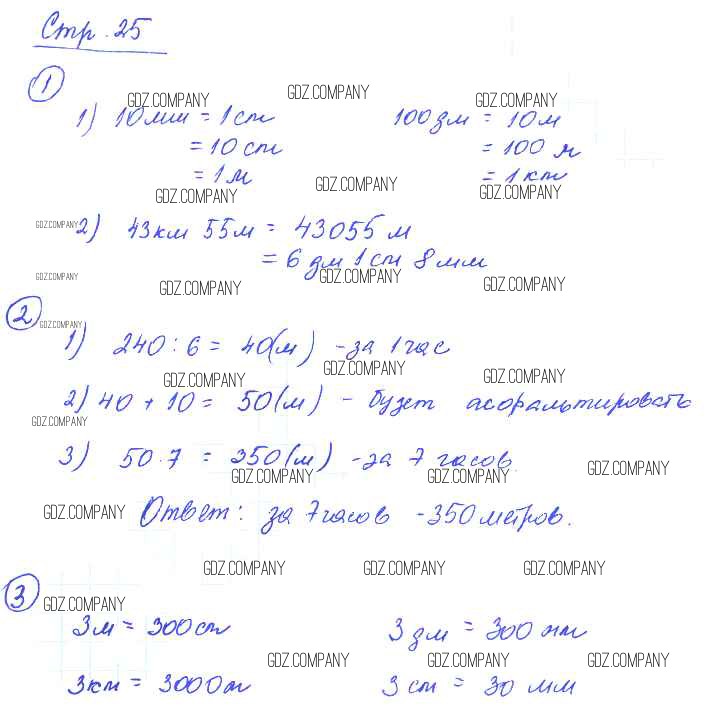 Стр. 25
1
GDZ.COMPANY GDZ.COMPANY GDZ.COMPANY
1) 10 мм = 1 см 100 дм = 10 м
= 10 см = 100 м
= 1 м = 1 км
GDZ.COMPANY GDZ.COMPANY GDZ.COMPANY
GDZ.COMPANY 2) 43 км 55 м = 43055 м
= 6 дм 1 см 8 мм
GDZ.COMPANY GDZ.COMPANY GDZ.COMPANY GDZ.COMPANY
2 GDZ.COMPANY
1) 240 : 6 = 40 (м) - за 1 час
GDZ.COMPANY GDZ.COMPANY GDZ.COMPANY
2) 40 + 10 = 50 (м) - будет асфальтировать
GDZ.COMPANY
3) 50 · 7 = 350 (м) - за 7 часов.
GDZ.COMPANY GDZ.COMPANY GDZ.COMPANY
GDZ.COMPANY Ответ: за 7 часов - 350 метров.
GDZ.COMPANY GDZ.COMPANY GDZ.COMPANY
3 GDZ.COMPANY
3 м = 300 см 3 дм = 300 мм
GDZ.COMPANY GDZ.COMPANY GDZ.COMPANY
3 км = 3000 м 3 см = 30 мм